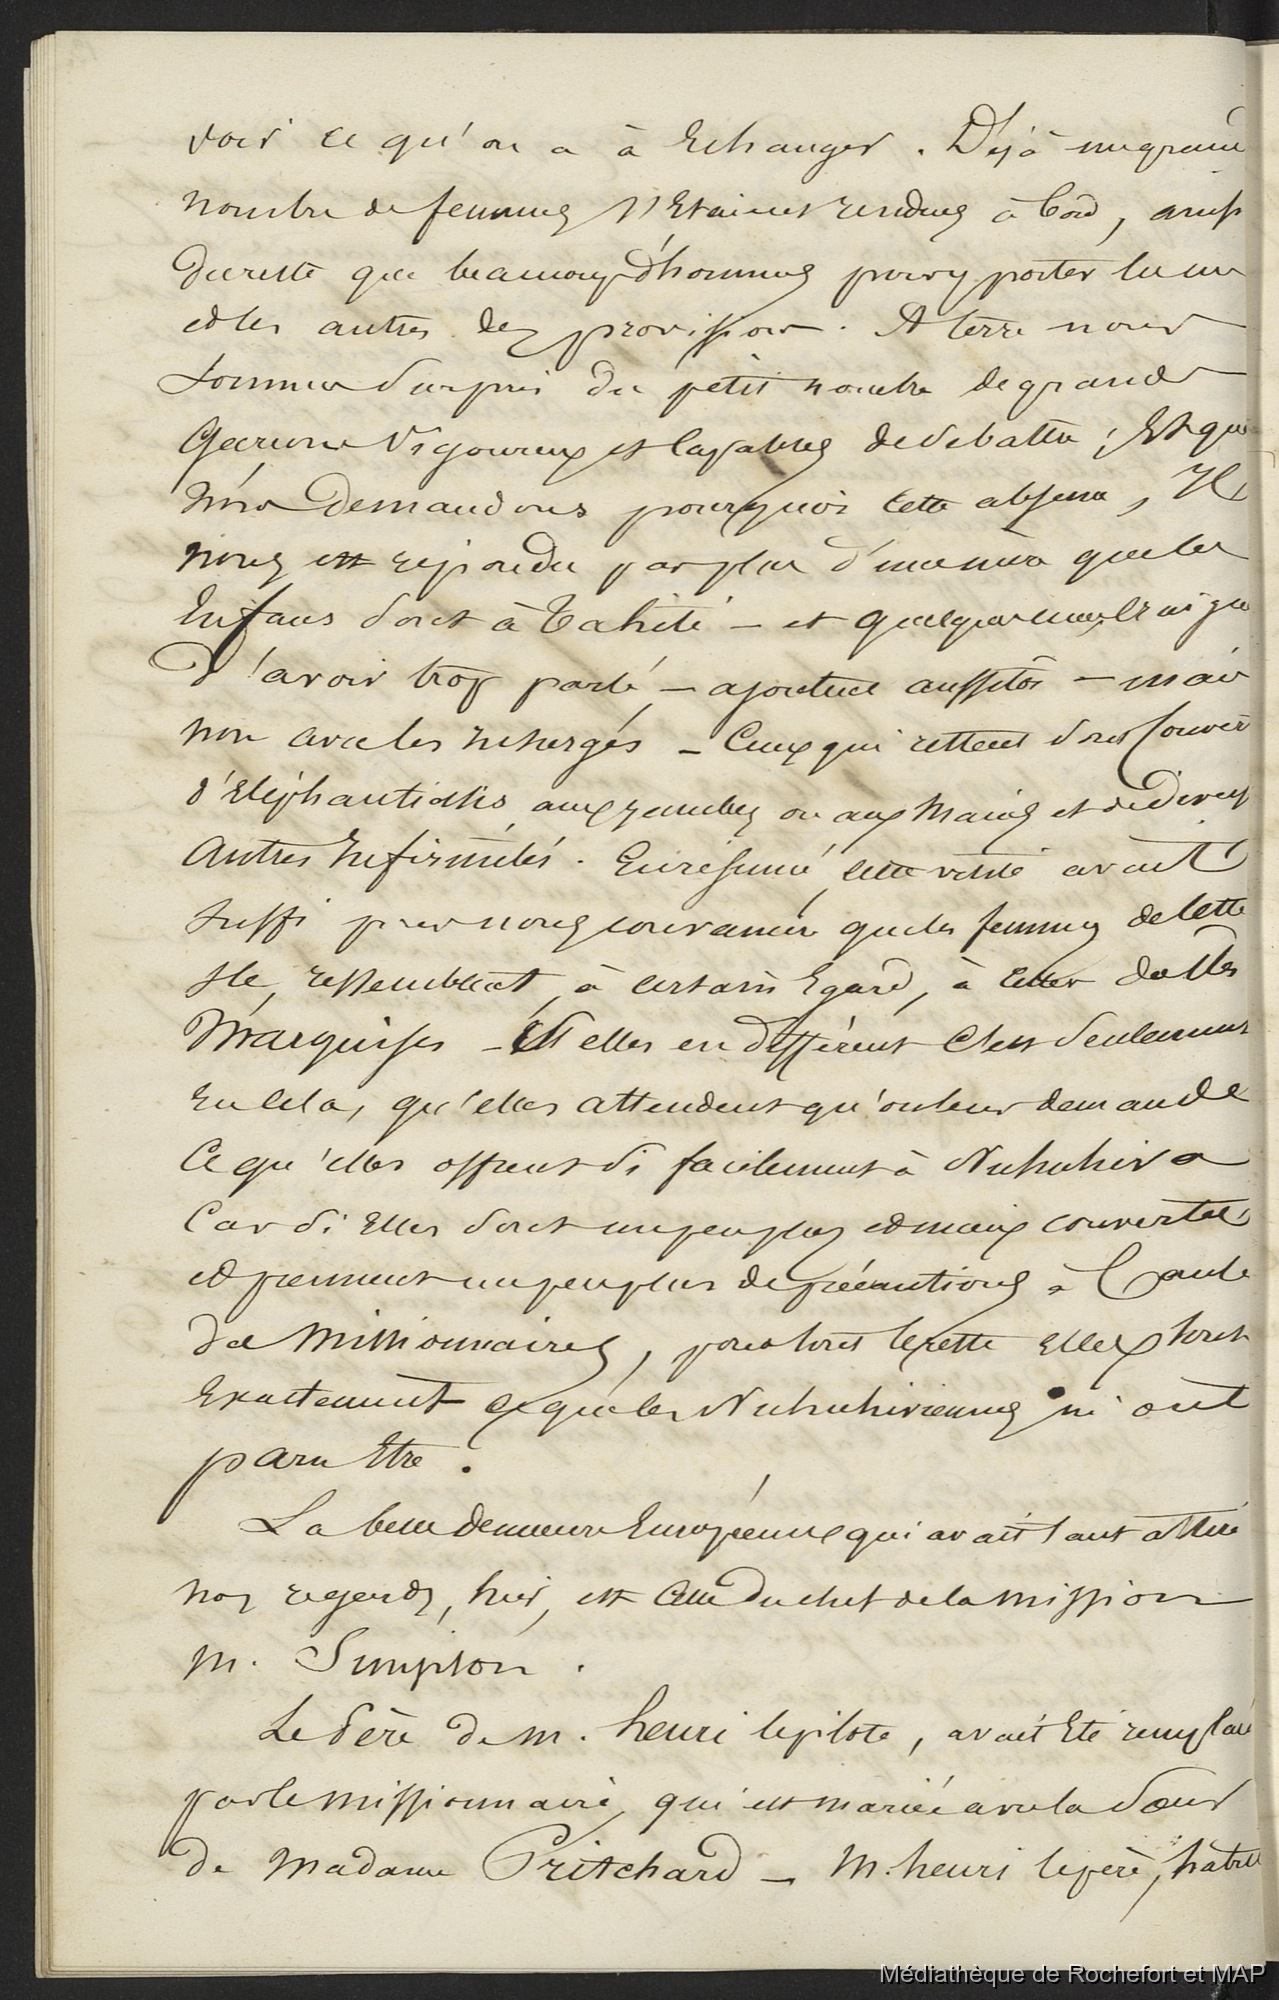 voir ce qu'on a à Echanger. Déjà un grand
nombre de femmes s'Etaient rendues à bord, ainsi
du reste que beaucoup d'hommes pour y porter les uns
et les autres des provisions. A terre nous
sommes surpris du petit nombre de grands
Garçons vigoureux et capables de se battre; Et quand
nous Demandons pourquoi cette absence, Il
nous est répondu par plus d'une mère que les
Enfans sont à Tahiti – et
d'avoir trop parlé, – ajoutent aussitôt – mais
non avec les insurgés – Ceux qui restent sont couverts
d'Eléphantiasis, aux jambes ou aux Mains et de diverses
Autres Infirmités. En résumé, cette visite avait
suffi pour nous convaincre que les femmes de cette
Ile, ressemblent, à certains Egard, à celles des Iles
Marquises – Si elles en diffèrent C'est seulement
En cela, qu'elles attendent qu'on leur demande
Ce qu'elles offrent si facilement à Nukuhiva
Car si Elles sont un peu plus et mieux couvertes,
et prennent un peu plus de précautions à Cause
des Missionnaires, pour tout le reste elles sont
Exactement ce que les Nukuhiviennes m'ont
paru Etre.
La belle demeure Européenne qui avait tant attiré
nos regards, hier, est celle du chef de la mission
M. Simpson.
Le Père de M. henri le pilote, avait Eté remplacé
par le missionnaire, qui est mariée avec la sœur
de Madame Pritchard – M. henri le père,
Médiathèque de Rochefort et MAP